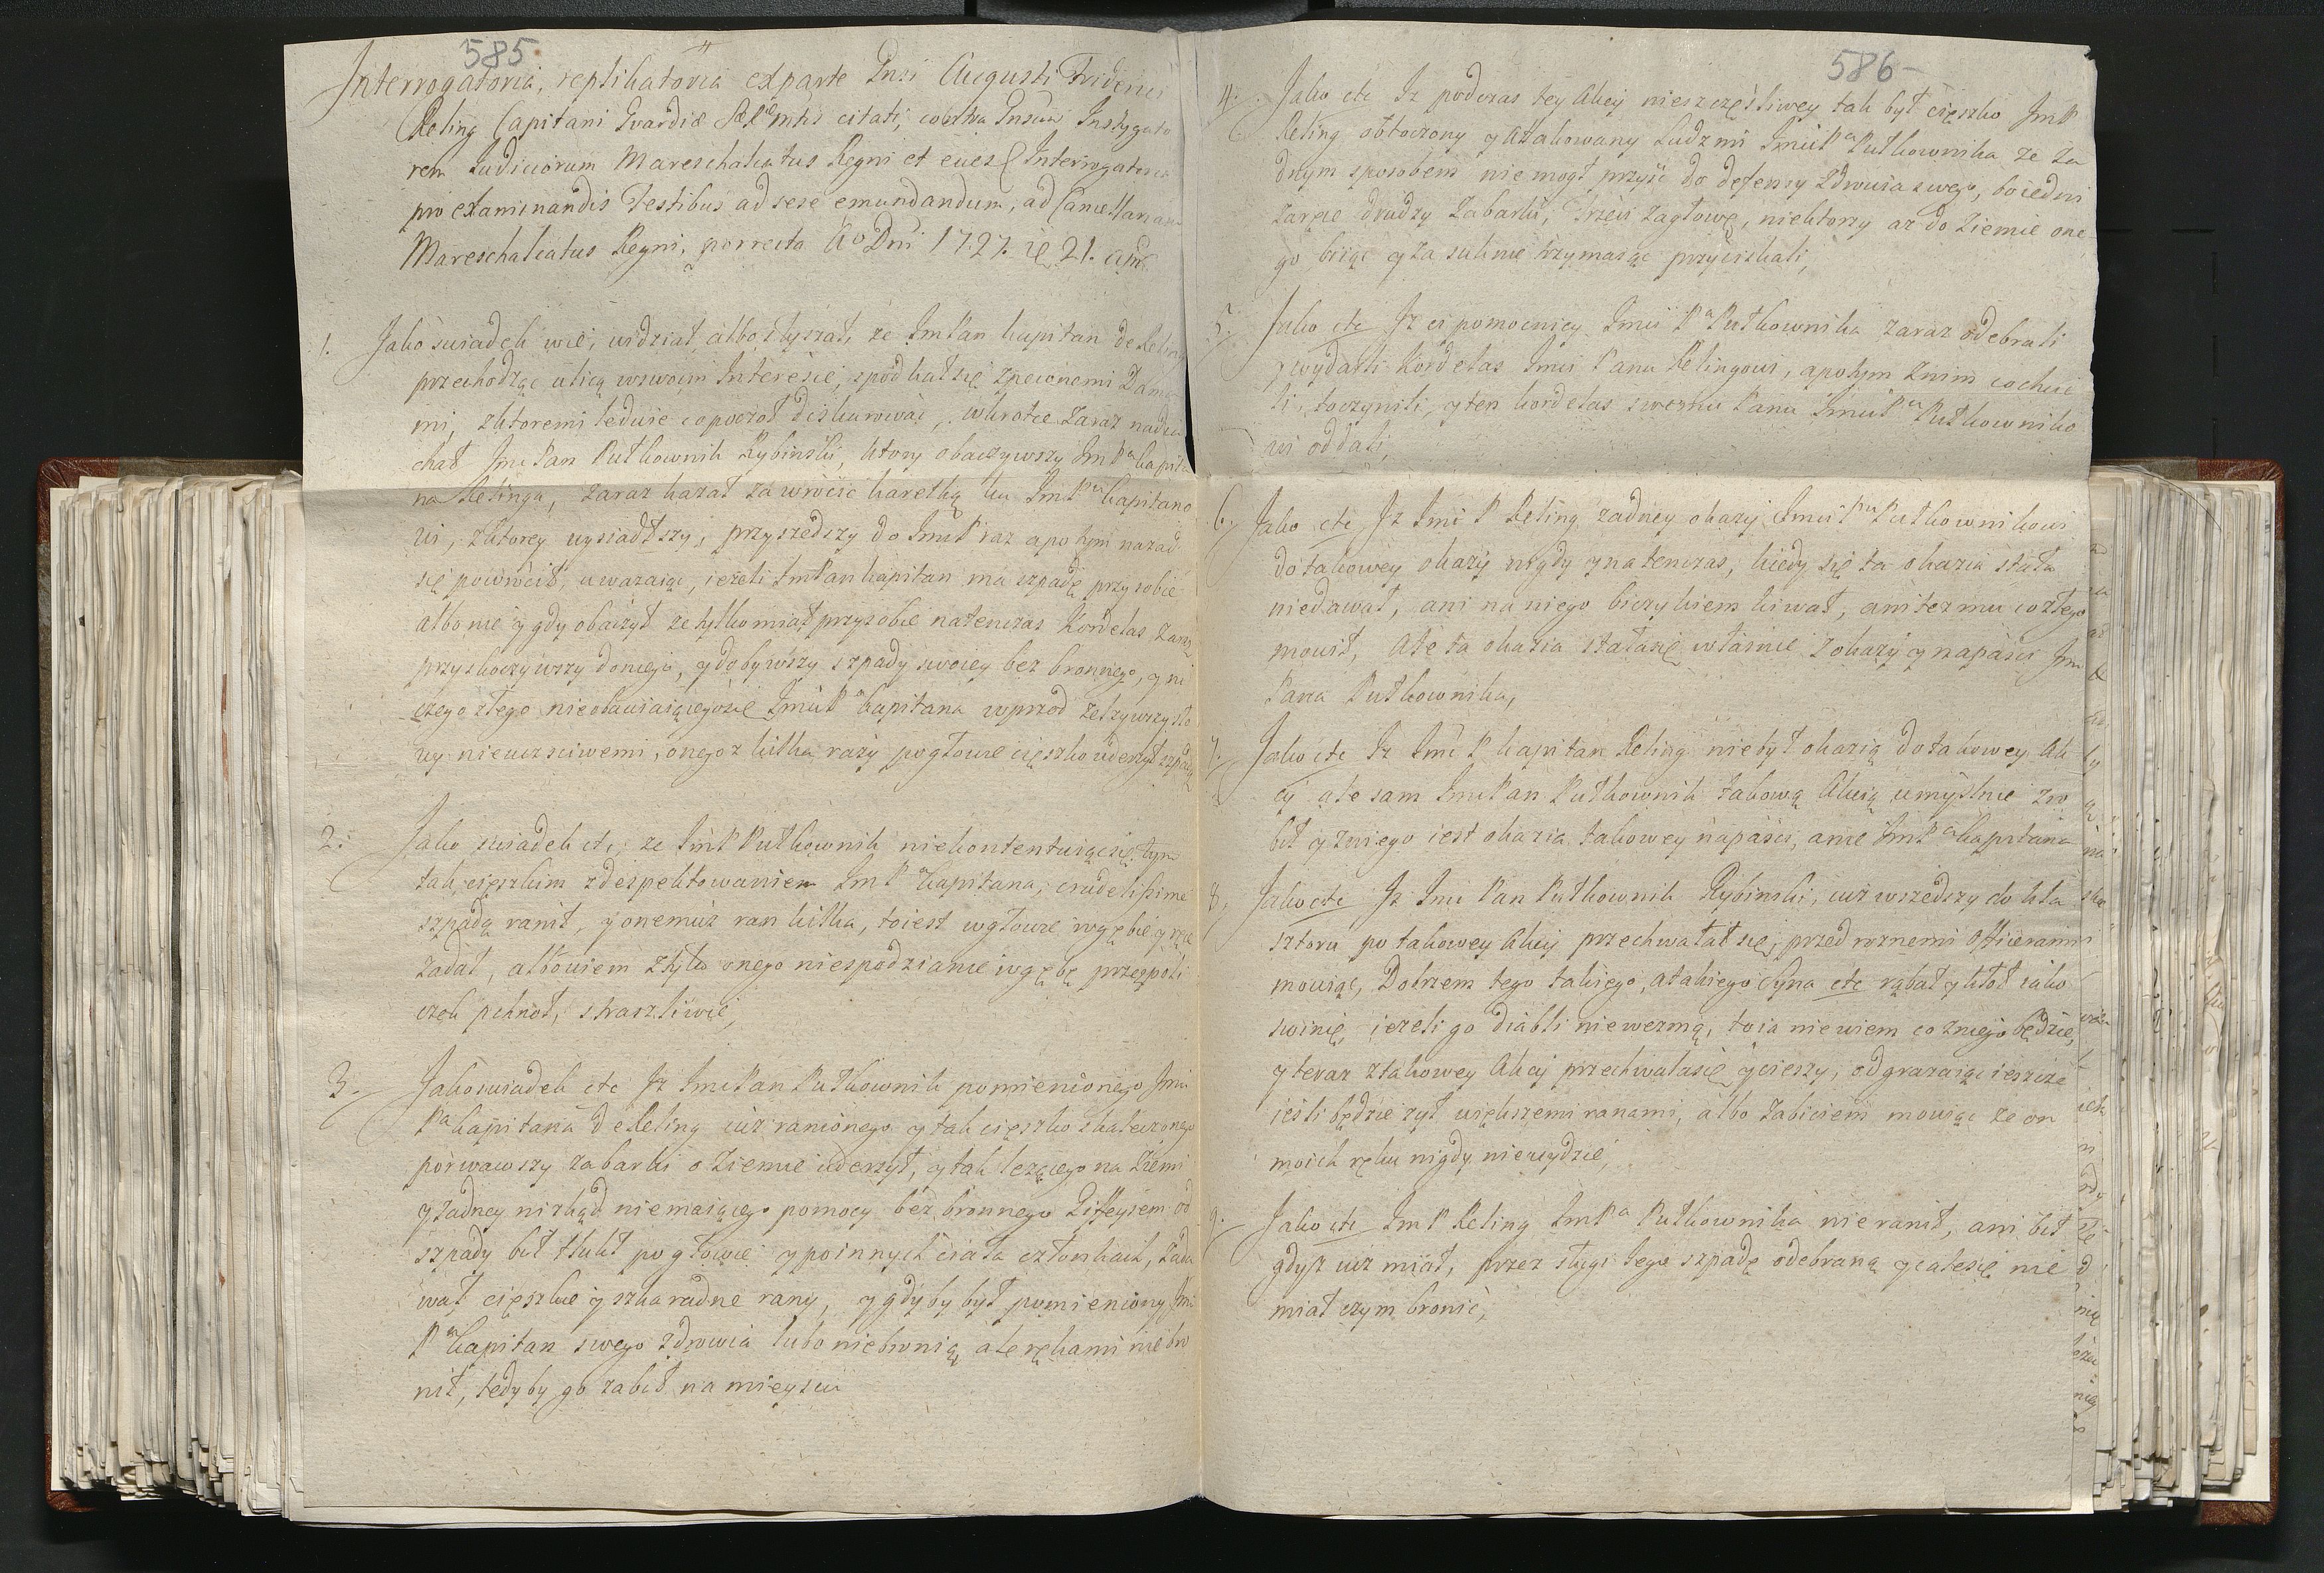 585
Interrogatoria, replikatoria ex parte Dnsi Augusti Friderici
Reling Capitani Gvardiæ citati, contra Dnsum Instygato
rem Judiciorum Mareschalcatus Regni et eius Interrogatoria
pro examinandis Testibus ad sese emundandum, ad Cancellariam
Mareschalcatus Regni, porrecta Ao Dni 1727. 21.
1. Jako swiadek wie, widział, albo słyszał, ze ImPan kapitan de Reling
przechodząc ulicą w swoim Interesie, spodkał się z pewnemi Dama
mi, z ktoremi ledwie co poczoł diskurować, wkrotce zaraz nadie
chał Jmć Pan Pułkownik Rybinski, ktory obaczywszy ImPa kapita
na Relinga, zaraz kazał zawrócić karetką ku ImPu kapitano
wi, z ktorey wysiadłszy, przyszedszy do Imć P raz a potym nazad
się powrócił, uwazaiąc, iezeli ImPan kapitan ma szpadę przy sobie
albo nie y gdy obaczył ze tylko miał przy sobie natenczas Kordelas, zaraz
przyskoczywszy do niego, y dobywszy szpady swoiey bez bronnego, y ni
czego złego nieobawiaiącego się Jmći Pa kapitana wprzod zelzywszy sło
wy nieuczciwemi, onego z kilka razy po głowie cięszko uderzył szpadą
2. Jako swiadek etc, ze ImP Pułkownik niekontentuiąc się tym
tak cięszkim zdespektowaniem ImP kapitana, crudelissime
szpadą ranił, y onemuz ran kilka, to iest w głowie w gębie y ręce
zadał, albowiem z tyłu onego niespodzianie w gębę przez poli
czek pchnoł, straszliwie,
3. Jako swiadek etc Iz Imć Pan Pułkownik pomienionego Jmći
Pa kapitana de Reling iuz ranionego y tak cięszko skaleczonego
porwawszy za barki o ziemie uderzył, y tak lezącego na ziemi
y zadney nizkąd niemaiącego pomocy bez bronnego Gifeysem od
szpady bił tłukł po głowie y po innych ciała członkach, zada
wał cięszkie y szkaradne rany, y gdyby był pomieniony Jmć
Pan kapitan swego zdrowia lubo nie bronią, ale rękami nie bro
nił, tedyby go zabił na mieyscu
586
4. Jako etc Iz podczas tey Akcÿ nieszczęśliwey tak był cięszko ImP
Reling obtoczony y Atakowany Ludzmi Imći Pa Pułkownika ze za
dnym sposobem nie mogł przyść do defensy zdrowia swego, bo iedni
za ręce drudzy za barki, trzeci za głowę, niektorzy az do ziemie one
go biiąc y za suknie trzymaiąc przyciskali,
5. Jako etc Iz ci pomocnicy Imći Pa Pułkownika zaraz odebrali
y wydarli kordelas Imći Panu Relingowi, a potym z nim co chcie
li, to czynili, y ten kordelas swemu Panu Imći Pu Pułkowniko
wi oddali,
6. Jako etc Iz Imć P Reling zadney okazÿ Imći Pu Pułkownikowi
do takowey okazÿ nigdy y na tenczas, kiedy się ta okazia stała
niedawał, ani na niego biczykiem kiwał, ani tez mu co złego
mowił, Ale ta okazia stała się własnie z okazÿ y napaści Jmć
Pana Pułkownika,
7. Jako etc Iz Imć P kapitan Reling nie był okazią do takowey Ak
cÿ ale sam Imć Pan Pułkownik takową Akcią umyślnie zro
bił y z niego iest okazia takowey napaści, a nie ImPa kapitana
8. Jako etc Iz Imć Pan Pułkownik Rybinski, iuz wszedszy do kla
sztoru po takowey Akcÿ przechwalał się, przed roznemi Officerami
mowiąc, Dobrzem tego takiego, a takiego Syna etc rąbał y kłoł iako
swinię, iezeli go diabli niewezmą, to ia niewiem co z niego będzie,
y teraz z takowey Akcÿ przechwala się y cieszy, odgrazaiąc ieszcze
iesli będzie zył większemi ranami, albo zabiciem mowiąc ze on
moich ręku nigdy niewydzie,
9. Jako etc ImP Reling ImPa Pułkownika nie ranił, ani bił
gdysz iuz miał, przez sługi Jego szpadę odebraną y cale się nie
miał czym bronić,